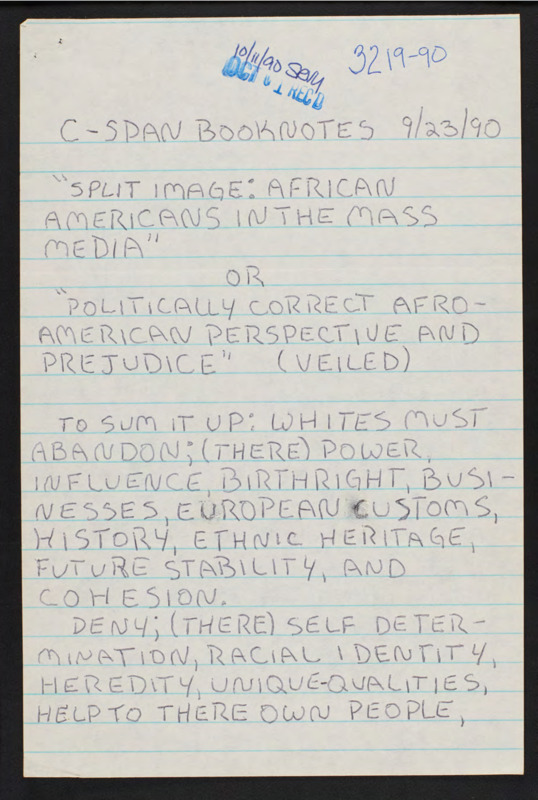 10/11/90 SBM 3219-90
OCT 01 REC'D
C-SPAN BOOKNOTES 9/23/90
"SPLIT IMAGE: AFRICAN
AMERICANS IN THE MASS
MEDIA"
OR
"POLITICALLY CORRECT AFRO-
AMERICAN PERSPECTIVE AND
PREJUDICE" (VEILED)
TO SUM IT UP: WHITES MUST
ABANDON; (THERE) POWER,
INFLUENCE, BIRTHRIGHT, BUSI-
NESSES, EUROPEAN CUSTOMS,
HISTORY, ETHNIC HERITAGE,
FUTURE STABILITY, AND
COHESION.
DENY; (THERE) SELF DETER-
MINATION, RACIAL IDENTITY,
HEREDITY, UNIQUE-QUALITIES,
HELP TO THERE OWN PEOPLE,